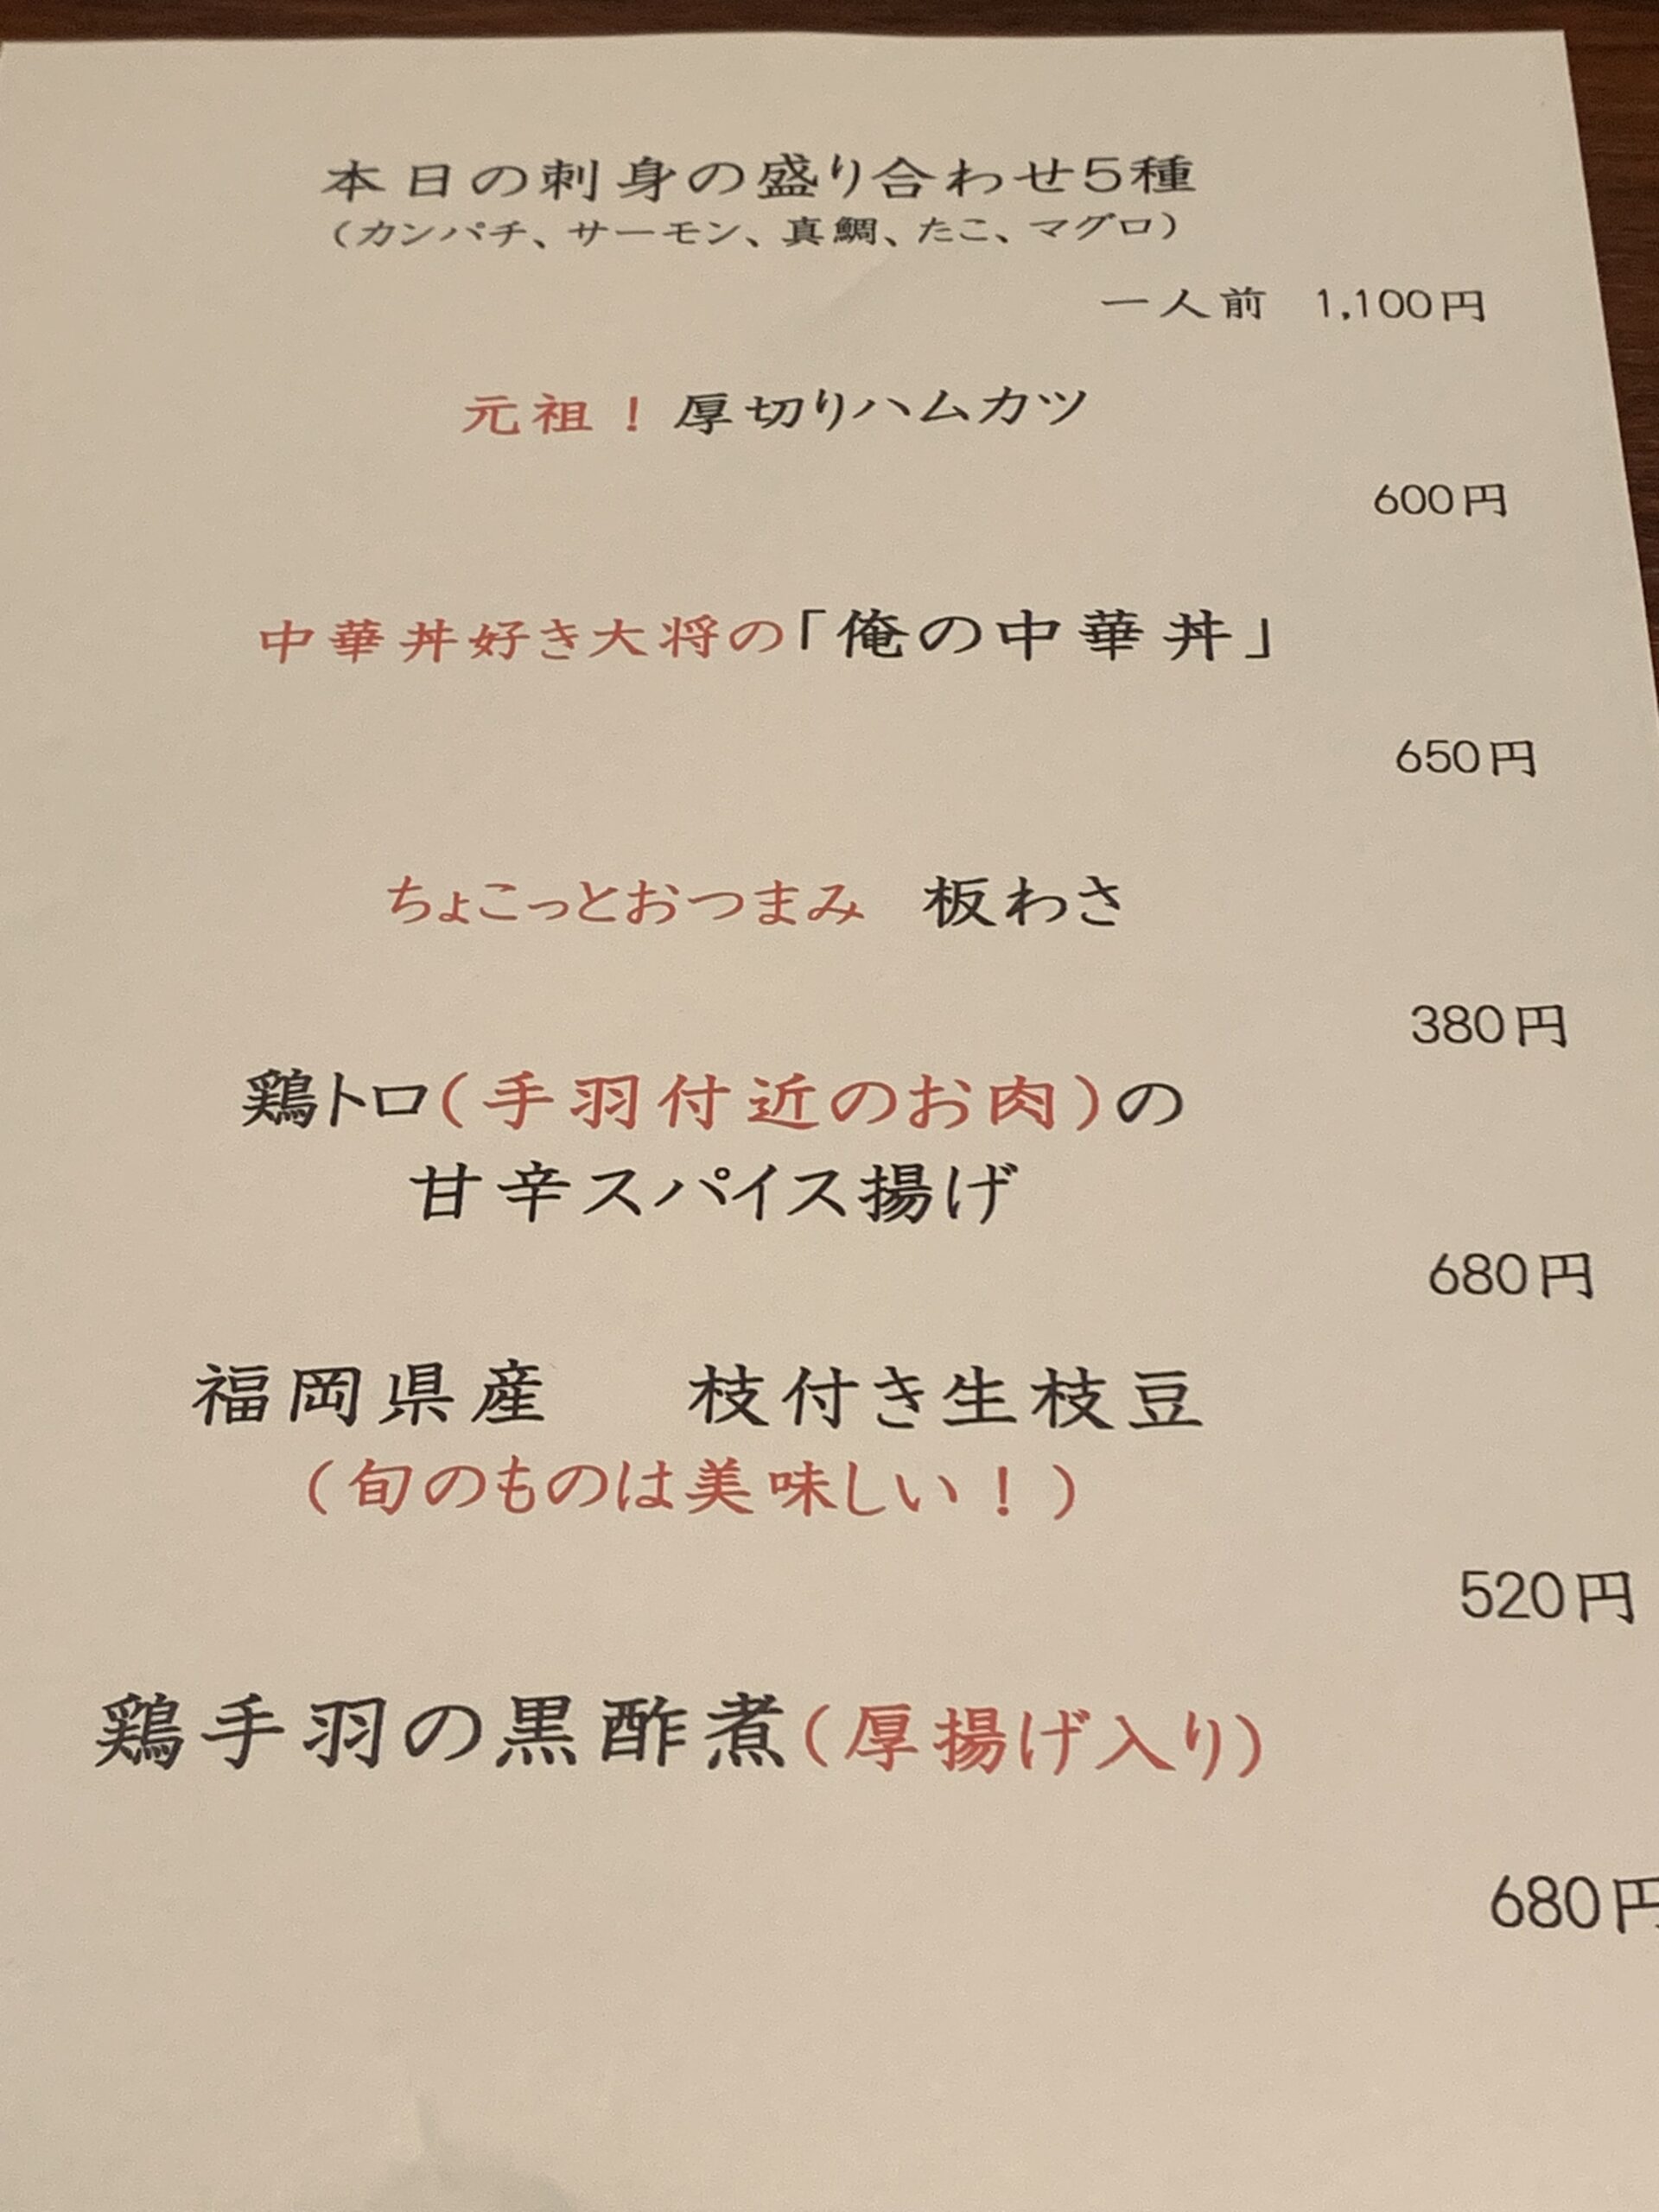 本日の刺身の盛り合わせ5種
（カンパチ、サーモン、真鯛、たこ、マグロ）
一人前　1,100円
元祖！厚切りハムカツ
600円
中華丼好き大将の「俺の中華丼」
650円
ちょこっとおつまみ　板わさ
380円
鶏トロ（手羽付近のお肉）の
甘辛スパイス揚げ
680円
福岡県産　枝付き生枝豆
（旬のものは美味しい！）
520円
鶏手羽の黒酢煮（厚揚げ入り）
680円